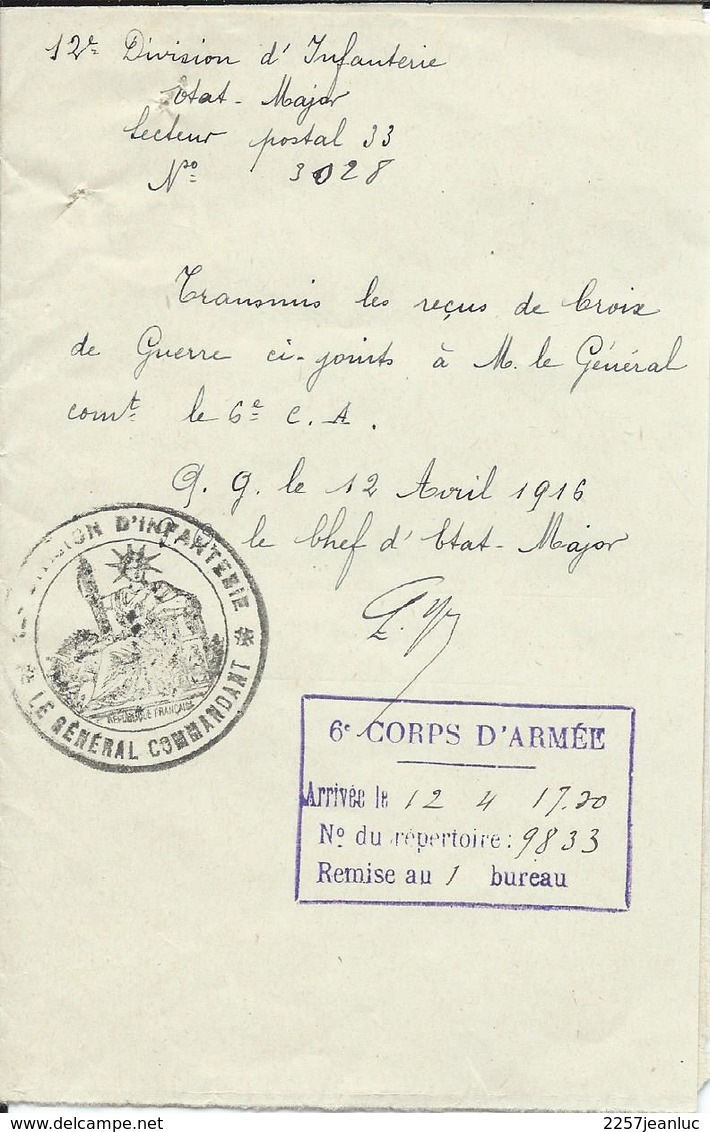 12e Division d'Infanterie
Etat-Major
Secteur postal 33
No 3028
Transmis les reçus de Croix
de Guerre ci-joints à M. le Général
comt le 6e C.A.
Q.G. le 12 Avril 1916
le Chef d'Etat-Major
DIVISION D'INFANTERIE
LE GÉNÉRAL COMMANDANT
RÉPUBLIQUE FRANÇAISE
6e CORPS D'ARMÉE
Arrivée le 12 4 17.30
No du répertoire: 9833
Remise au 1 bureau
2257jeanluc